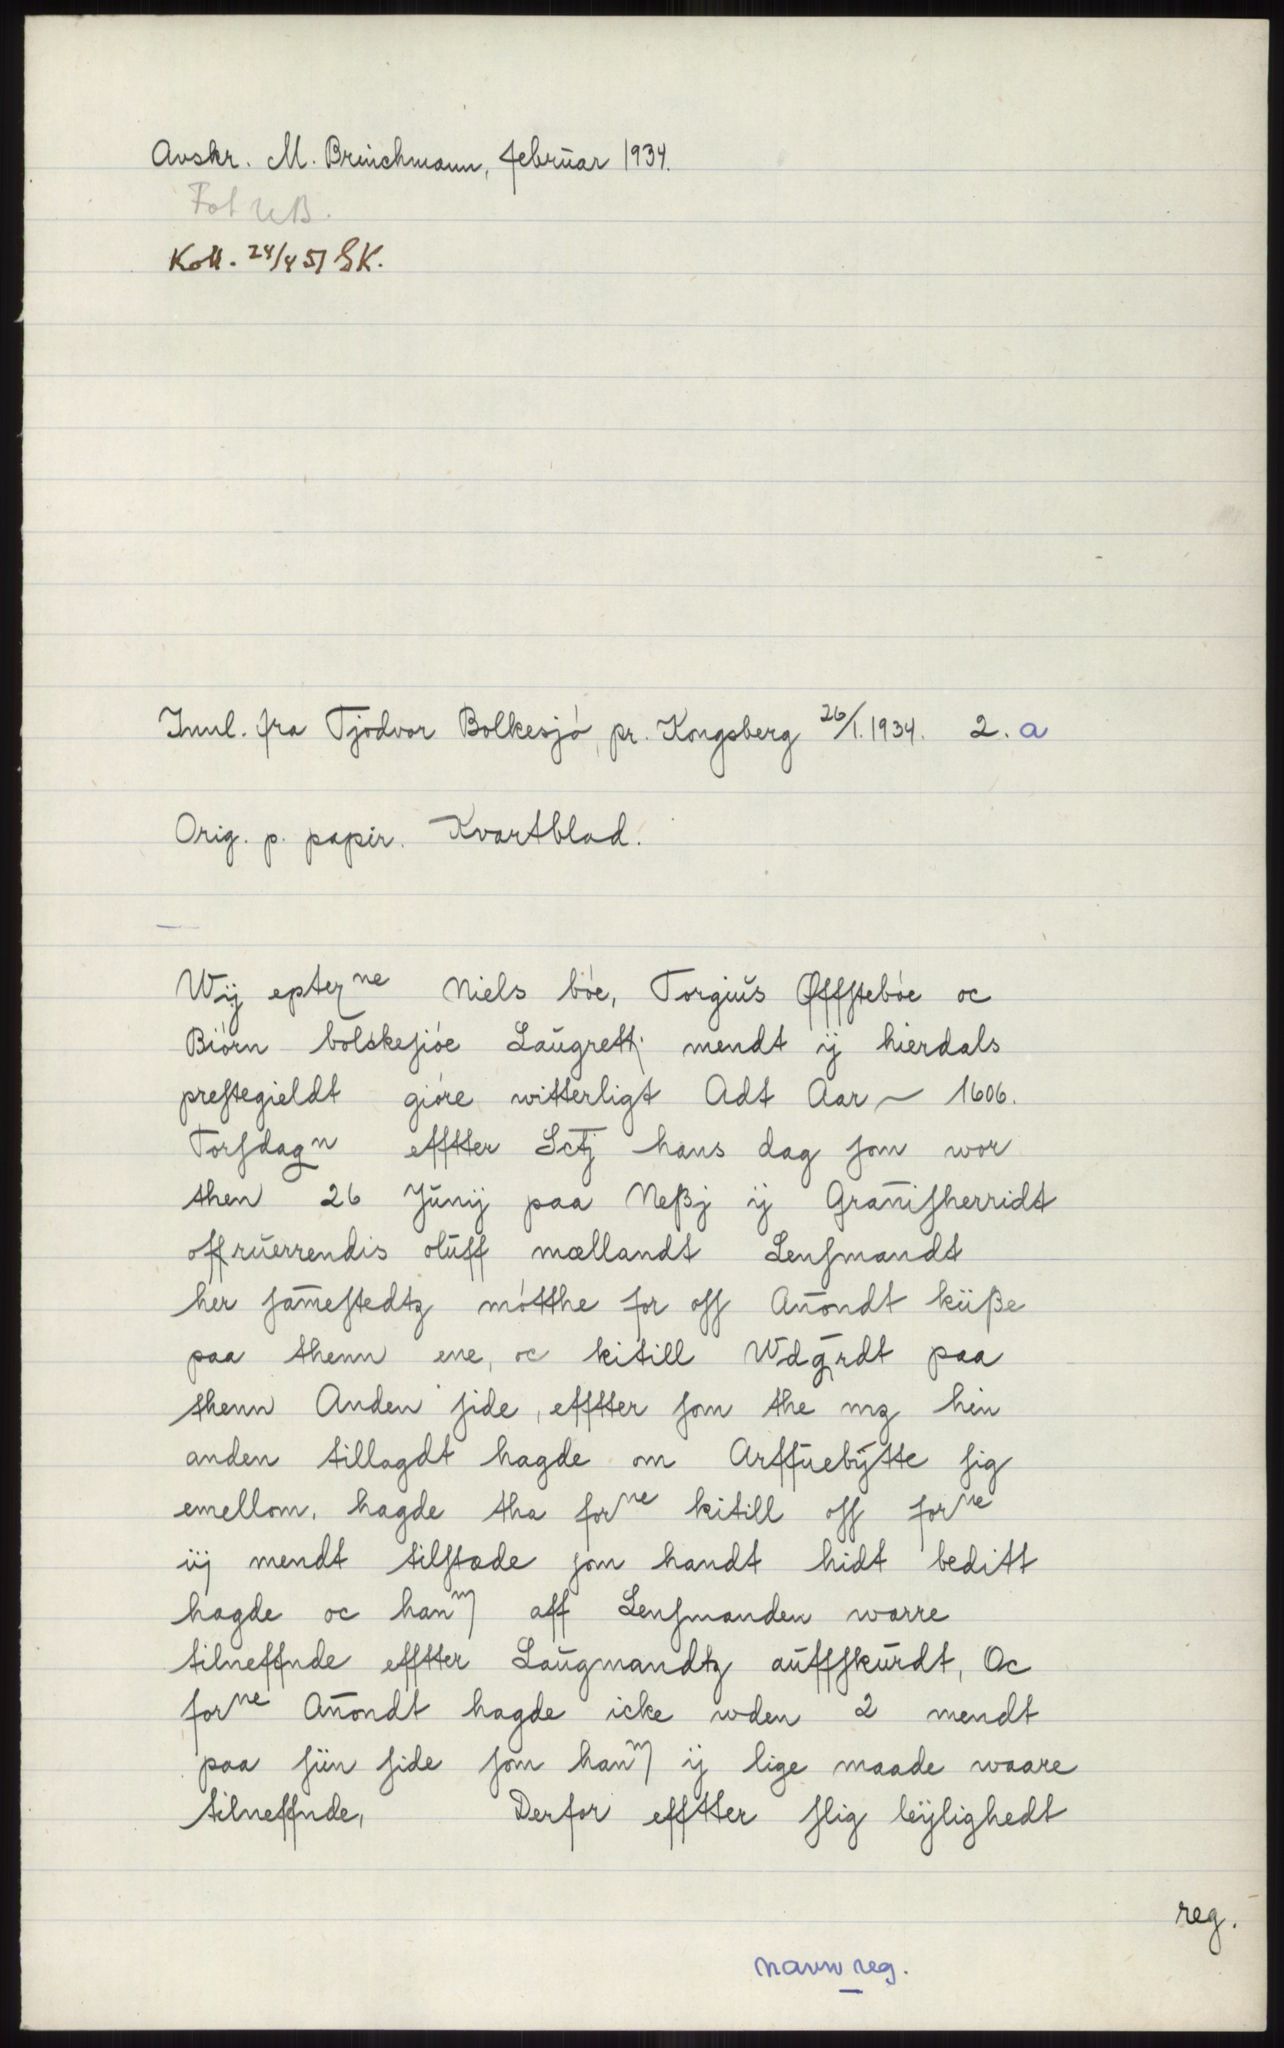 Avskr. M. Brinchmann, februar 1934.
Fot UB.
Koll. 24/4 51 SK.
Innl. fra Tjodvor Bolkesjø, pr. Kongsberg 26/1. 1934. 2. a
Orig. p. papir. Kvartblad.
Wij epterne Niels bóe, Torgiŭs Øffstebóe oc
Biórn bolskesióe Laŭgrettj mendt ij hierdals
prestegieldt gióre witterligt Adt Aar ~ 1606.
Torsdagn effter Sctj hans dag som wor
then 26 Jŭnij paa Neßj ij Grānisherridt
offŭerŭerrendis olŭff mællandt Lensmandt
her sāmestedtz mótthe for oss Aŭondt kiiße
paa thenn ene, oc kitill Wdgrdt paa
thenn Anden side, effter som the mz hin
anden tillagdt hagde om Arffŭebýtte sig
emellom. hagde tha forne kitill oss forne
iij mendt tilstæde som handt hidt beditt
hagde oc hanm aff Lensmanden warre
tilneffnde effter Laŭgmandtz aŭffskŭrdt, Oc
forne Aŭondt hagde icke wden 2 mendt
paa siin side som hanm ij lige maade waare
tilneffnde, Derfor effter slig leijlighedt
reg.
navn reg.